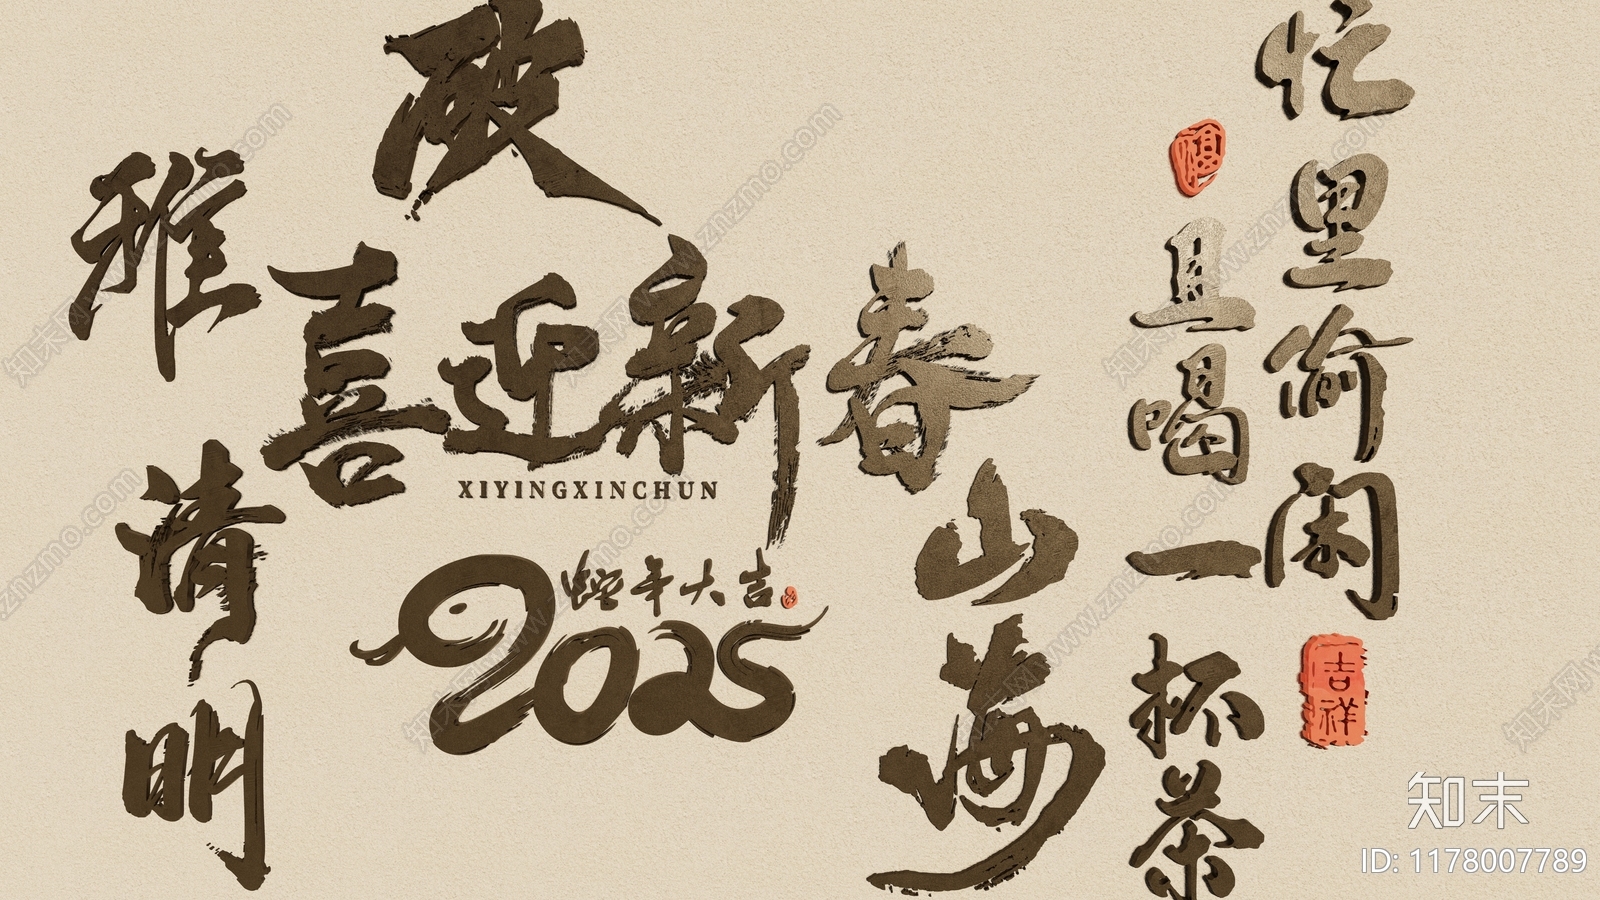 破
雅
喜迎新春
XIYINGXINCHUN
清明
2025
蛇年大吉
山海
忙里偷闲
福
且喝一杯茶
吉祥
知末
ID: 1178007789
知末网www.znzmo.com